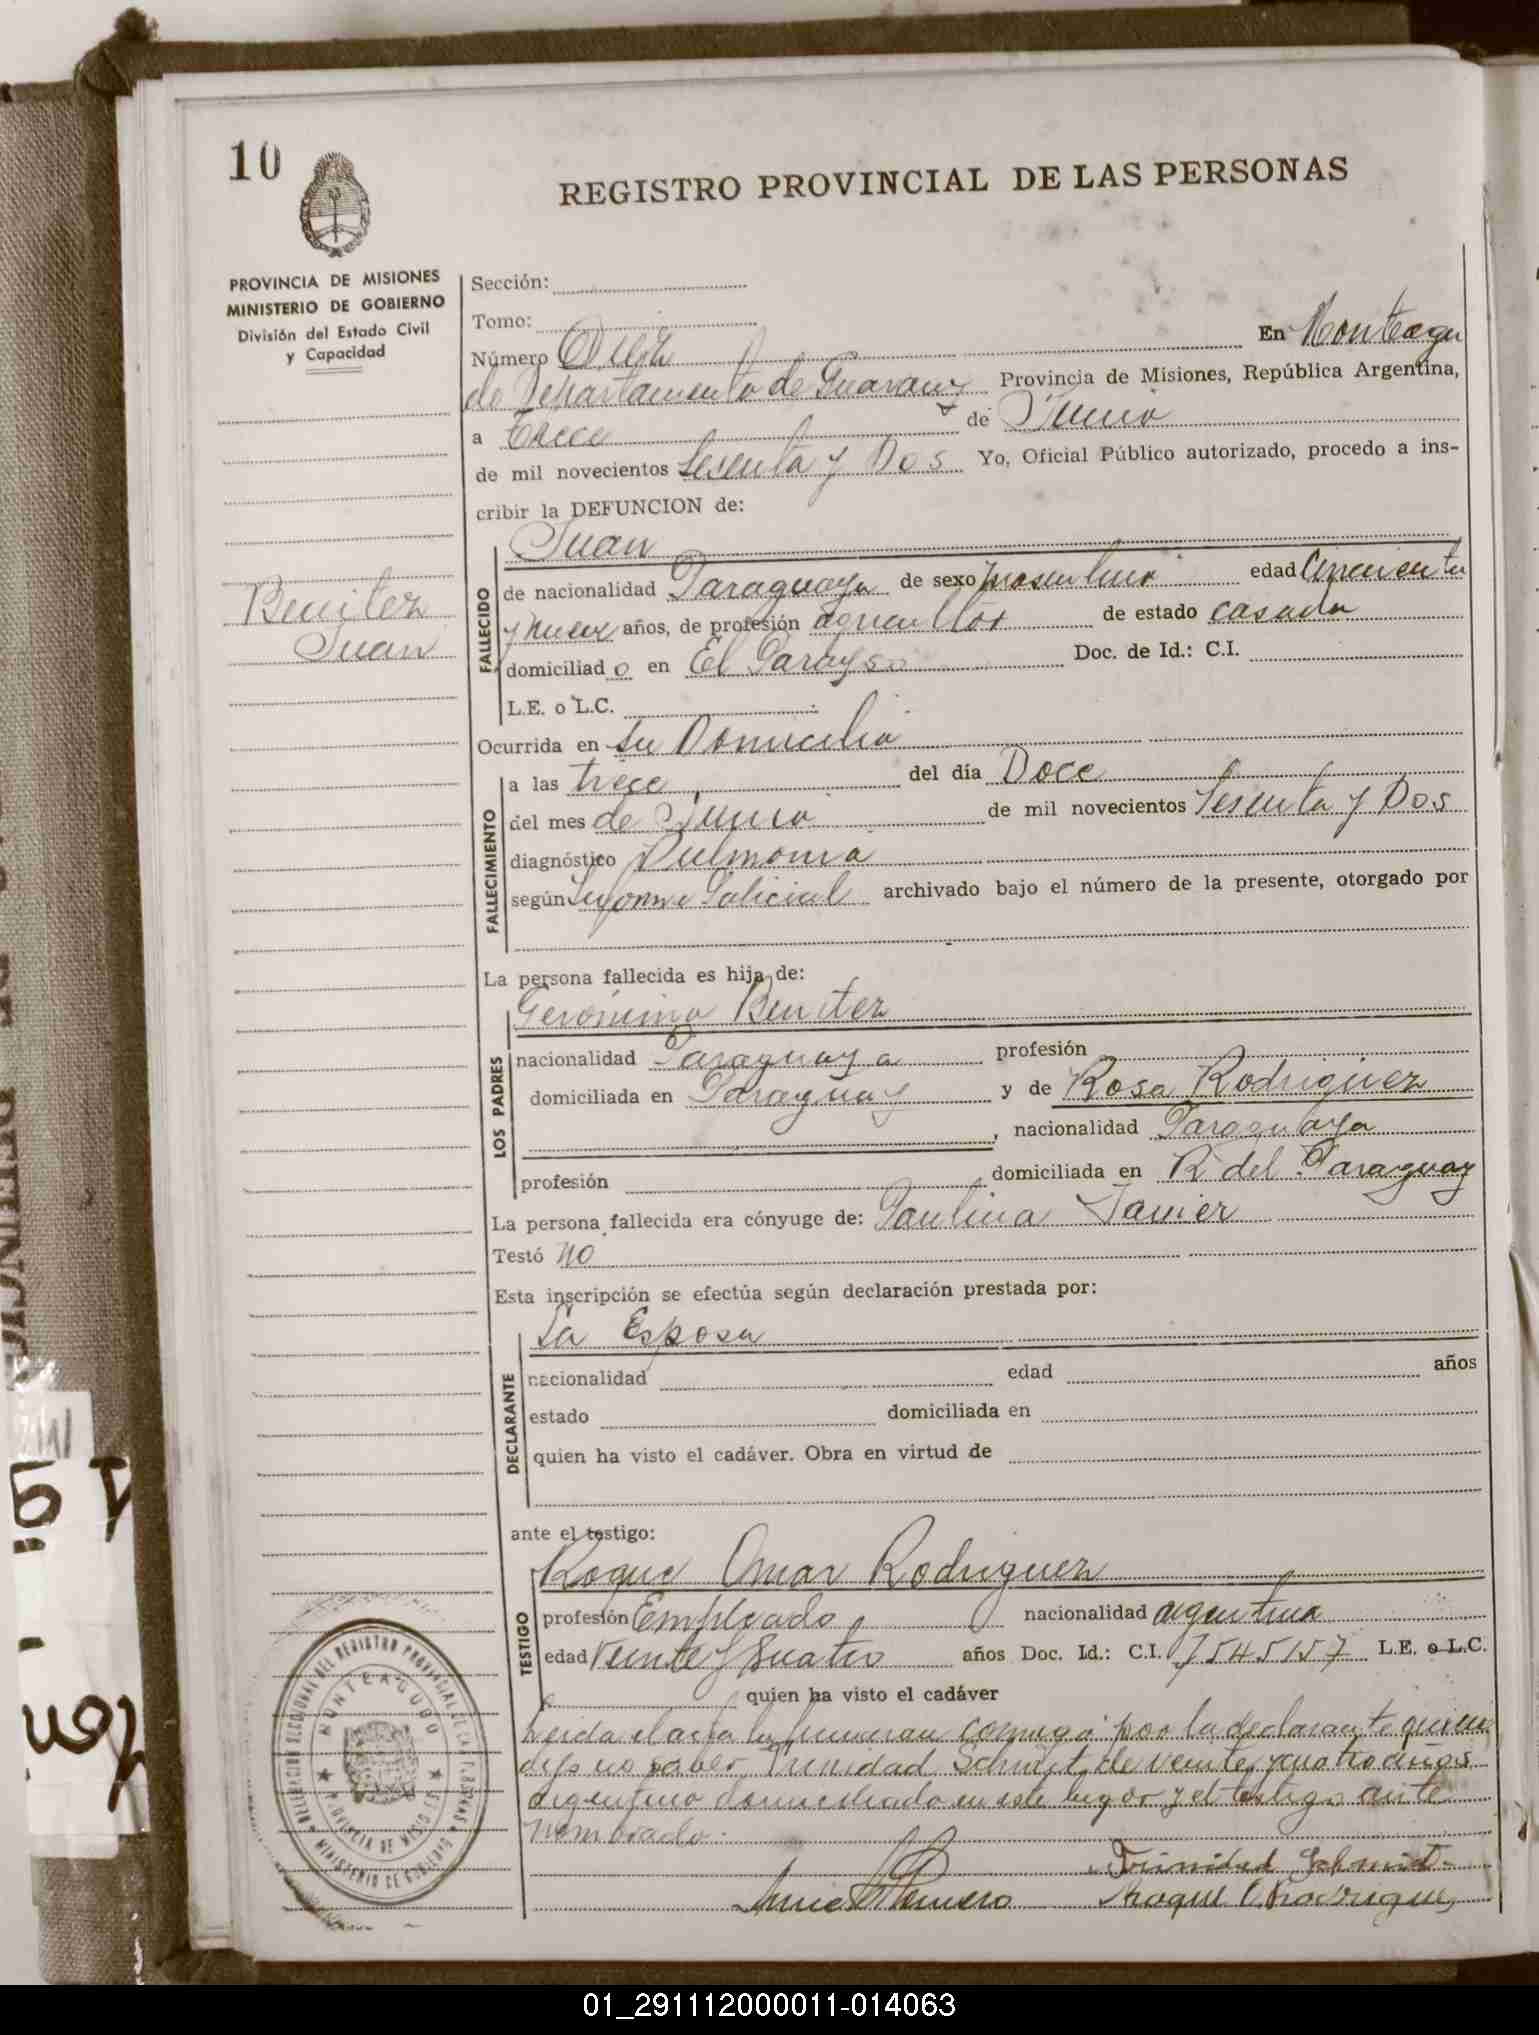 10
REGISTRO PROVINCIAL DE LAS PERSONAS
PROVINCIA DE MISIONES
MINISTERIO DE GOBIERNO
División del Estado Civil
y Capacidad
Benitez
Juan
Sección:
Tomo:
Número Diez En Monteagu
do Departamento de Guarany Provincia de Misiones, República Argentina,
a Trece de Junio
de mil novecientos Sesenta y Dos Yo, Oficial Público autorizado, procedo a ins-
cribir la DEFUNCION de:
FALLECIDO
Juan
de nacionalidad Paraguaya de sexo masculino edad Cincuenta
y nueve años, de profesión agricultor de estado casado
domiciliado en El Parayso Doc. de Id.: C.I.
L.E. o L.C.
Ocurrida en su Domicilio
FALLECIMIENTO
a las trece del día Doce
del mes de Junio de mil novecientos Sesenta y Dos
diagnóstico Pulmonia
según Informe Policial archivado bajo el número de la presente, otorgado por
La persona fallecida es hija de:
LOS PADRES
Gerónimo Benitez
nacionalidad Paraguaya profesión
domiciliada en Paraguay y de Rosa Rodriguez
, nacionalidad Paraguaya
profesión domiciliada en R. del Paraguay
La persona fallecida era cónyuge de: Paulina Javier
Testó no
Esta inscripción se efectúa según declaración prestada por:
DECLARANTE
La Esposa
nacionalidad edad años
estado domiciliada en
quien ha visto el cadáver. Obra en virtud de
ante el testigo:
TESTIGO
Roque Omar Rodriguez
profesión Empleado nacionalidad argentina
edad Veinte y Cuatro años Doc. Id.: C.I. 7545157 L.E. o L.C.
quien ha visto el cadáver
Leida el acta la firmaran conmigo por la declarante quien
dijo no saber, Trinidad Schmit, de veinte y cuatro años
argentino domiciliado en este lugar y el testigo ante
nombrado.
Trinidad Schmit
Roque O. Rodriguez
DELEGACION SECCIONAL DEL REGISTRO PROVINCIAL DE LAS PERSONAS
MONTEAGUDO
PROVINCIA DE MISIONES
MINISTERIO DE GOBIERNO
01_291112000011-014063